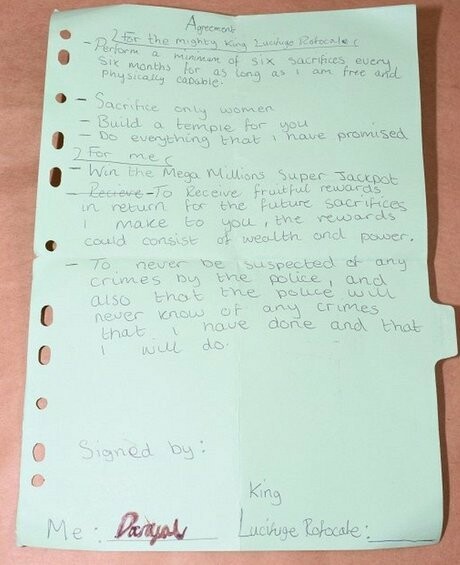 Agreement
For the mighty king Lucifuge Rofocale:
- Perform a minimum of six sacrifices every
six months for as long as I am free and
physically capable.
- Sacrifice only women
- Build a temple for you
- Do everything that i have promised
For me:
- Win the Mega Millions Super Jackpot
- Recieve To Receive fruitful rewards
in return for the future sacrifices
i make to you, the rewards
could consist of wealth and power.
- To never be suspected of any
crimes by the police, and
also that the police will
never know of any crimes
that i have done and that
i will do.
Signed by:
King
Me: Danyal Lucifuge Rofocale: